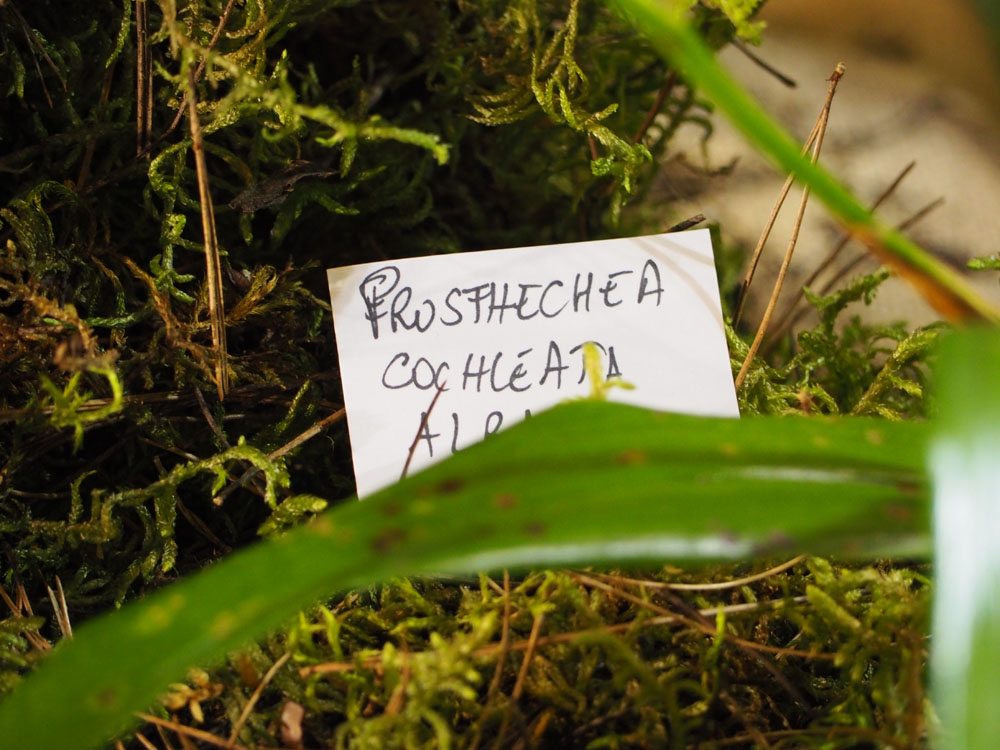 PROSTHECHEA
COCHLEATA